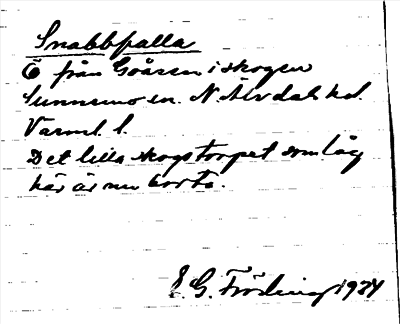 Snabbfalla
Ö från Goåsen i skogen
Sunnemo sn. N. Älvdals hd.
Värml. l.
Det lilla skogstorpet som låg
här är nu borta.
E. G. Fröding 1924